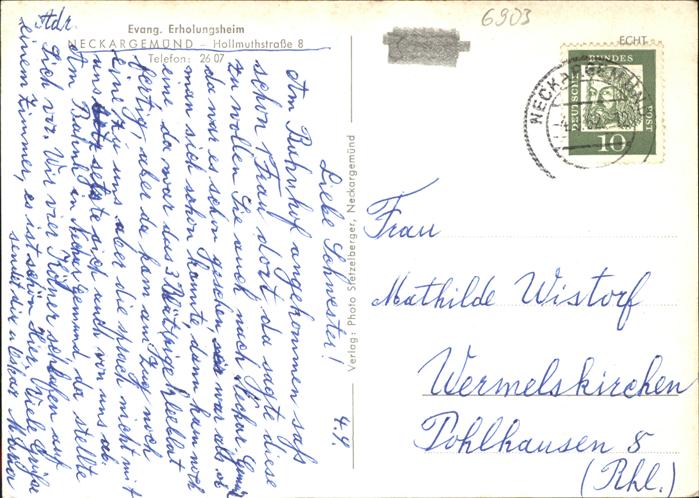 6903
Adr.
Evang. Erholungsheim
NECKARGEMÜND – Hollmuthstraße 8
Telefon: 26 07
ECHT
NECKARGEMÜND
DEUTSCHE BUNDESPOST
10
4.9.
Liebe Schwester!
Am Bahnhof angekommen saß
schon 1 Frau dort da sagte diese
zu wollen Sie auch nach Neckar Gemünd
da war es schon gesehen war als ob
man sich schon kannte, dann kam noch
eine da war das 3 blättrige Kleeblat
fertig, aber da kam am Zug noch
eine zu uns aber die sprach nicht mit
uns setzte sich auch von uns ab.
Am Bahnh in Neckargemünd da stellte
Sich vor. Wir vier Kölner schlafen auf
einem Zimmer, es ist schön hier. Viele Grüße
sendet dir liebe
Verlag: Photo Stetzelberger, Neckargemünd
Frau
Mathilde Wistorf
Wermelskirchen
Pohlhausen 8
(Rhl.)